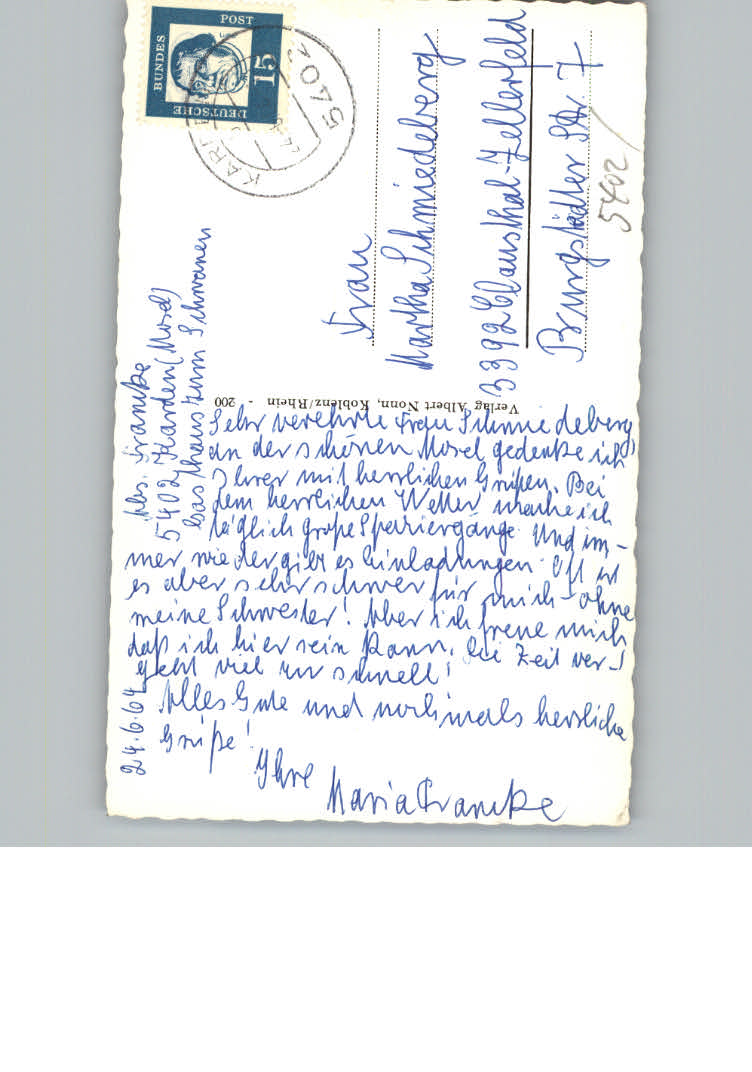 DEUTSCHE
BUNDES
POST
15
5402
Frau
Martha Schmiedeberg
3392 Clausthal-Zellerfeld
Burgstädter Str. 7
5402
Verlag Albert Nonn, Koblenz/Rhein - 200
Abs. Francke
5402 Karden (Mosel)
Gasthaus zum Schwanen
Sehr verehrte Frau Schmiedeberg,
an der schönen Mosel gedenke ich
Ihrer mit herzlichen Grüßen. Bei
dem herrlichen Wetter mache ich
täglich große Spaziergänge. Und im-
mer wieder gibt es Einladungen. Oft ist
es aber sehr schwer für mich - ohne
meine Schwester! Aber ich freue mich
daß ich hier sein kann. Die Zeit ver-
geht viel zu schnell!
Alles Gute und nochmals herzliche
Grüße!
Ihre
Maria Francke
24.6.64